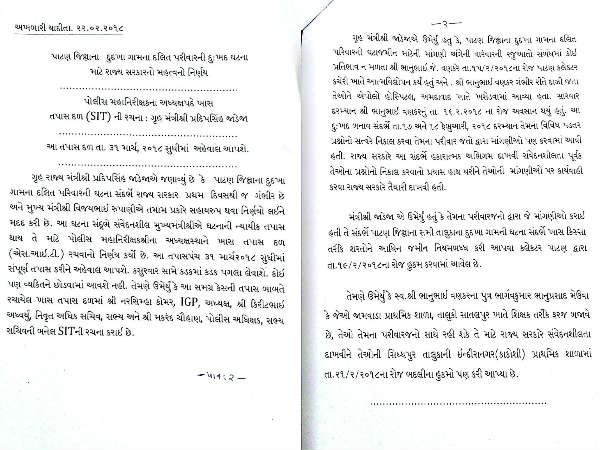 અખબારી યાદીતા. ૨૨.૦૨.૨૦૧૮
પાટણ જિલ્લાના દુદખા ગામના દલિત પરિવારની દુઃખદ ઘટના
માટે રાજ્ય સરકારનો મહત્વનો નિર્ણય
પોલીસ મહાનિરીક્ષકના અધ્યક્ષપદે ખાસ
તપાસ દળ (SIT) ની રચના : ગૃહ મંત્રીશ્રી પ્રદિપસિંહ જાડેજા
આ તપાસ દળ તા. ૩૧ માર્ચ, ૨૦૧૮ સુધીમાં અહેવાલ આપશે.
ગૃહ રાજ્ય મંત્રીશ્રી પ્રદિપસિંહ જાડેજાએ જણાવ્યું છે કે પાટણ જિલ્લાના દુદખા
ગામના દલિત પરિવારની ઘટના સંદર્ભે રાજ્ય સરકાર પ્રથમ દિવસથી જ ગંભીર છે
અને મુખ્ય મંત્રીશ્રી વિજયભાઈ રુપાણીએ તમામ પ્રકારે સહાયરુપ થવા નિર્ણયો લઈને
મદદ કરી છે. આ ઘટના સંદર્ભે સંવેદનશીલ મુખ્યમંત્રીશ્રીએ ઘટનાની ન્યાયીક તપાસ
થાય તે માટે પોલીસ મહાનિરીક્ષકશ્રીના અધ્યક્ષસ્થાને ખાસ તપાસ દળ
(એસ.આઈ.ટી.) રચવાનો નિર્ણય કર્યો છે. આ તપાસપંચ ૩૧ માર્ચ૨૦૧૮ સુધીમાં
સંપૂર્ણ તપાસ કરીને અહેવાલ આપશે. કસુરવાર સામે કડકમાં કડક પગલા લેવાશે. કોઈ
પણ વ્યક્તિને છોડવામાં આવશે નહી. તેમણે ઉમેર્યુ કે આ સમગ્ર કેસની તપાસ બાબતે
રચાયેલ ખાસ તપાસ દળમાં શ્રી નરસિમ્હા કોમર, IGP, અધ્યક્ષ, શ્રી કિરીટભાઈ
અધ્વર્યુ, નિવૃત અધિક સચિવ, સભ્ય અને શ્રી મકરંદ ચૌહાણ, પોલીસ અધિક્ષક, સભ્ય
સચિવની બનેલ SITની રચના કરાઈ છે.
-૨-
ગૃહ મંત્રીશ્રી જાડેજાએ ઉમેર્યુ હતુ કે, પાટણ જિલ્લાના દુદખા ગામના દલિત
પરિવારની જમીન માટેની માંગણી અંગેની વારંવારની રજુઆતો સંબંધમાં કોઈ
પ્રતિભાવ ન મળતા શ્રી ભાનુભાઈ જે. વણકરે તા.૧૫/૨/૨૦૧૮ના રોજ પાટણ કલેક્ટર
કચેરી ખાતે આત્મવિલોપન કર્યુ હતું અને . શ્રી ભાનુભાઈ વણકર ગંભીર રીતે દાઝી જતા
તેઓને એપોલો હોસ્પિટલ, અમદાવાદ ખાતે ખસેડવામાં આવ્યા હતા. સારવાર
દરમ્યાન શ્રી ભાનુભાઈ વણકરનું તા. ૧૬/૨/૨૦૧૮ ના રોજ અવસાન થયું હતું. આ
દુઃખદ બનાવ સંદર્ભે તા.૧૭ અને ૧૮ ફેબ્રુઆરી, ૨૦૧૮ દરમ્યાન તેમના વિવિધ પડતર
પ્રશ્નોનો સત્વરે નિકાલ કરવા તેમના પરીવાર જનો દ્વારા માંગણીઓ પણ કરવામાં આવી
હતી. રાજ્ય સરકારે આ સંદર્ભે હકારાત્મક અભિગમ દાખવી સંવેદનશીલતા પૂર્વક
તેઓના પ્રશ્નોનો નિકાલ કરવાનો પ્રયાસ હાથ ધરીને તેઓની માંગણીઓ પર કાર્યવાહી
કરવા રાજ્ય સરકારે તૈયારી દાખવી હતી.
મંત્રીશ્રી જાડેજા એ ઉમેર્યુ હતું કે તેમના પરીવારજનો દ્વારા જે માંગણીઓ કરાઈ
હતી તે સંદર્ભે પાટણ જિલ્લાના સમી તાલુકાના દુદખા ગામની ઘટના સંદર્ભે ખાસ કિસ્સા
તરીકે શરતોને આધિન જમીન નિયમબધ્ધ કરી આપવા કલેક્ટર પાટણ દ્વારા
તા.૧૯/૨/૨૦૧૮ના રોજ હુકમ કરવામાં આવેલ છે.
તેમણે ઉમેર્યુ કે સ્વ.શ્રી ભાનુભાઈ વણકરના પુત્ર ભાર્ગવકુમાર ભાનુપ્રસાદ મેઉવા
કે જેઓ જામવાડા પ્રાથમિક શાળા, તાલુકો સાંતલપુર ખાતે શિક્ષક તરીકે ફરજ બજાવે
છે, તેઓ તેમના પરીવારજનો સાથે રહી શકે તે માટે રાજ્ય સરકારે સંવેદનશીલતા
દાખવીને તેઓની સિધ્ધપુર તાલુકાની ઈન્દીરાનગર(કાકોશી) પ્રાથમિક શાળામાં
તા.૨૧/૨/૨૦૧૮ના રોજ બદલીના હુકમો પણ કરી આપ્યા છે.